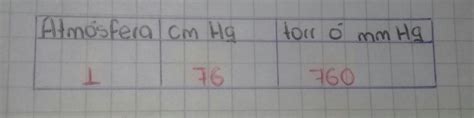 Atmósfera cm Hg torr ó mm Hg
1 76 760